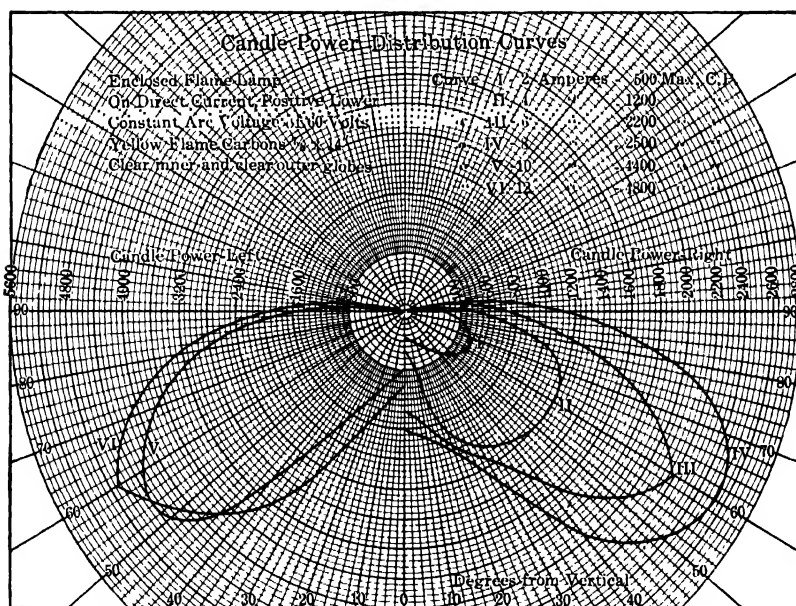 Candle Power Distribution Curves
Enclosed Flame Lamp
On Direct Current, Positive Lower
Constant Arc Voltage of 60 Volts
Yellow Flame Carbons
Clear inner and clear outer globes
Curve I - 2 Amperes - 500 Max. C.P.
II 4 " 1200 " "
III 6 " 2200 " "
IV - 8 " 2500 " "
V - 10 " 4400 " "
VI 12 " 4800 " "
Candle Power Left
Candle Power Right
5600 4800 4000 3200 2400 1600
1000 1200 1400 1600 1800 2000 2200 2400 2600
90
90
80
80
70
VI
V
II
III
IV
70
60
60
50
50
Degrees from Vertical
40 30 20 10 0 10 20 30 40